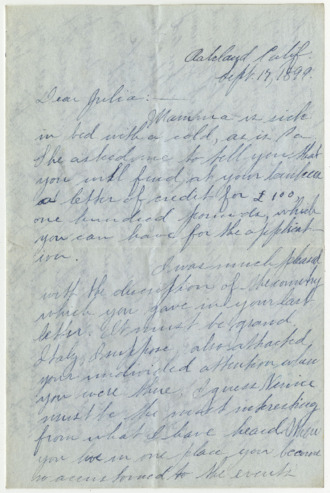 Oakland Calif
Sept. 19, 1899.
Dear Julia:—
Mamma is sick
in bed with a cold, as is Pa.
She asked me to tell you that
you will find at your bankers
a letter of credit for £100,
one hundred pounds, which
you can have for the applicat-
ion.
I was much pleased
with the description of the scenery
which you gave in your last
letter. It must be grand.
Italy, I suppose also attached
your undivided attention when
you were there. I guess Venice
must be the most interesting
from what I have heard. When
you are in one place, you become
so accustomed to the events